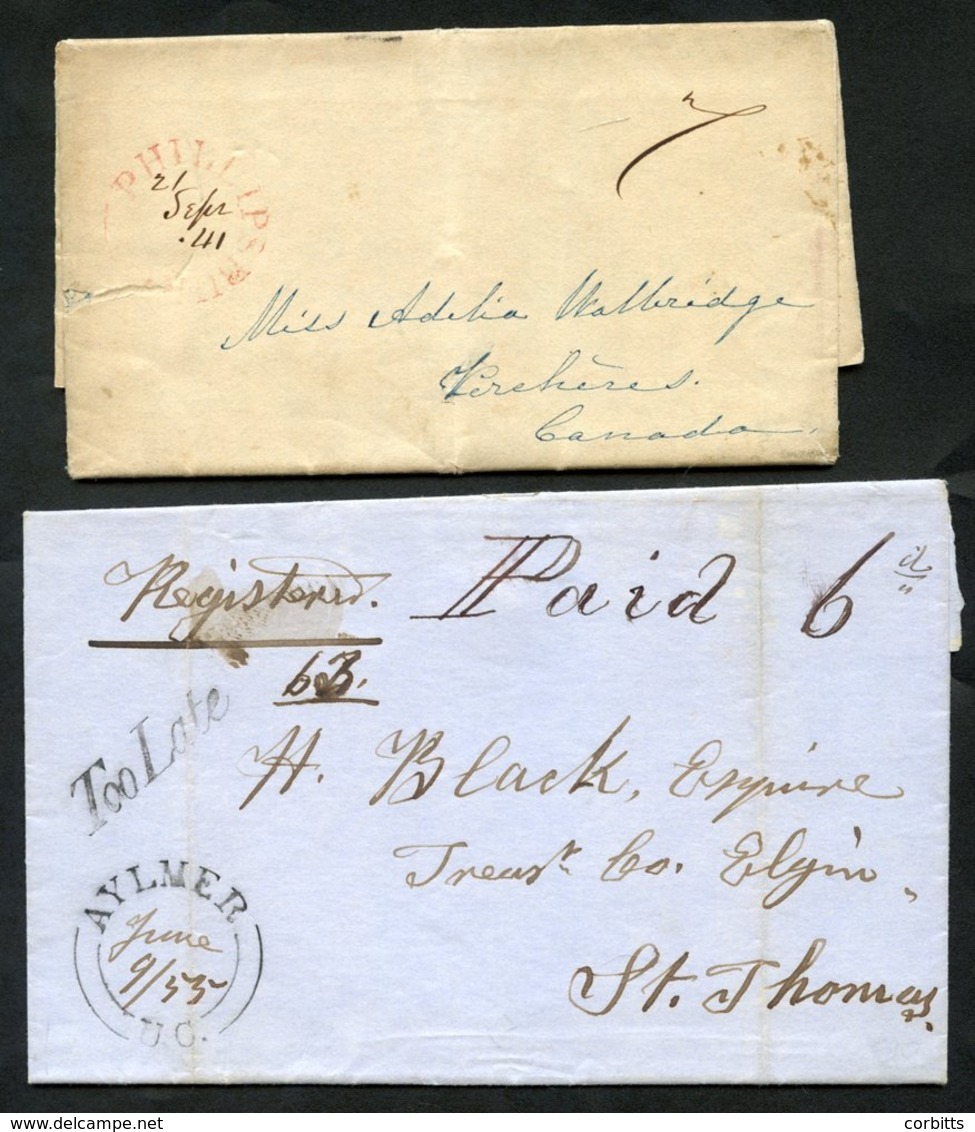 PHILLIPSB
21
Sepr
.41
7
Miss Adelia Walbridge
Verchères.
Canada.
Registered. Paid 6d
63.
Too Late
H. Black, Esquire
Treasr. Co. Elgin,
St. Thomas.
AYLMER
June
9/55
U C.
delcampe.net
corbitts